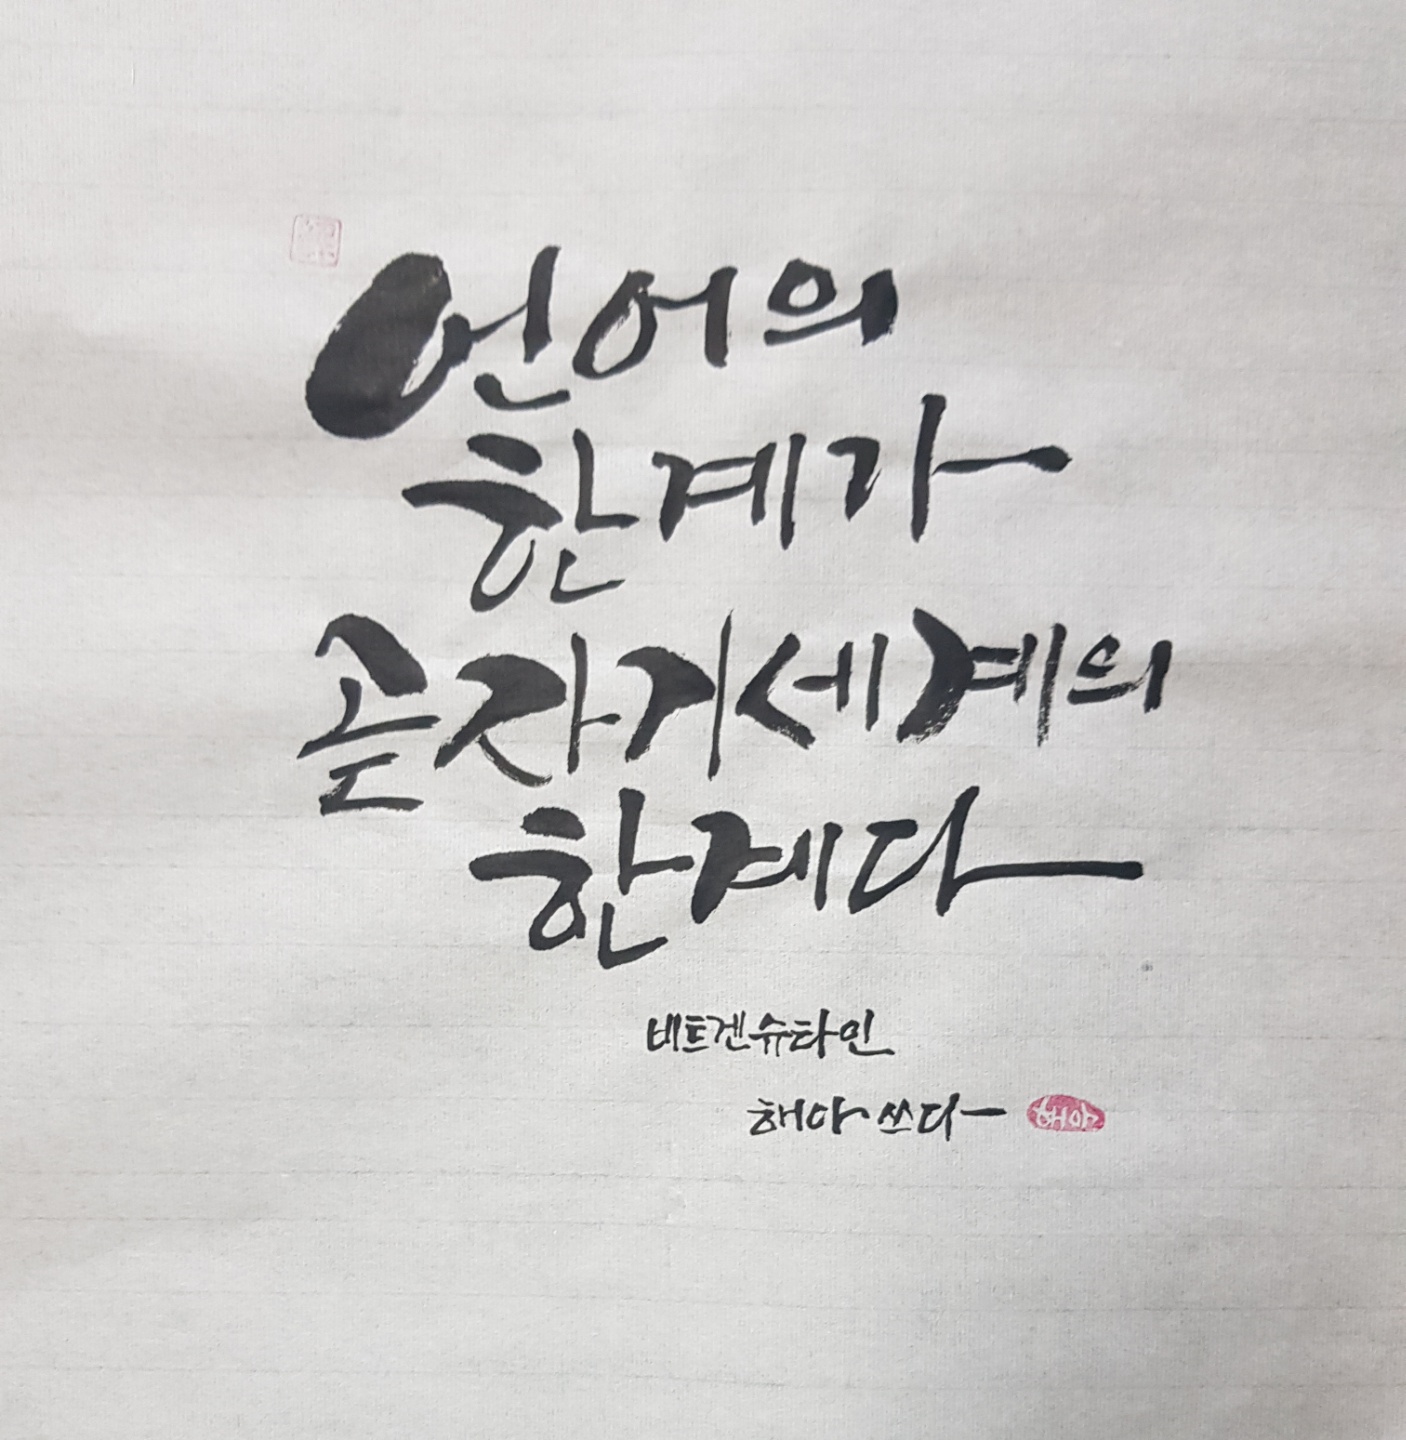 언어의
한계가
곧 자기 세계의
한계다
비트겐슈타인
해아 쓰다
해아